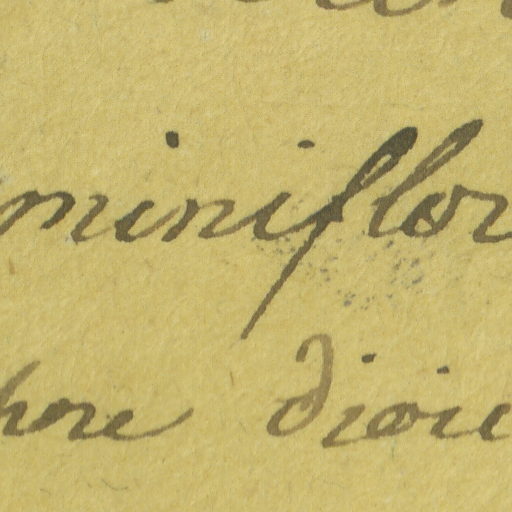 miniflor
hore dioic